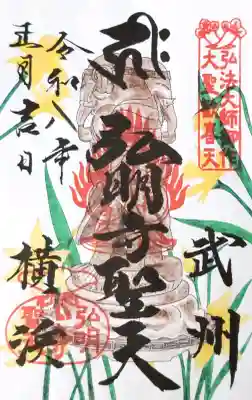 弘法大師御作
大聖歓喜天
武州
弘明寺聖天
横浜
令和八年
正月吉日